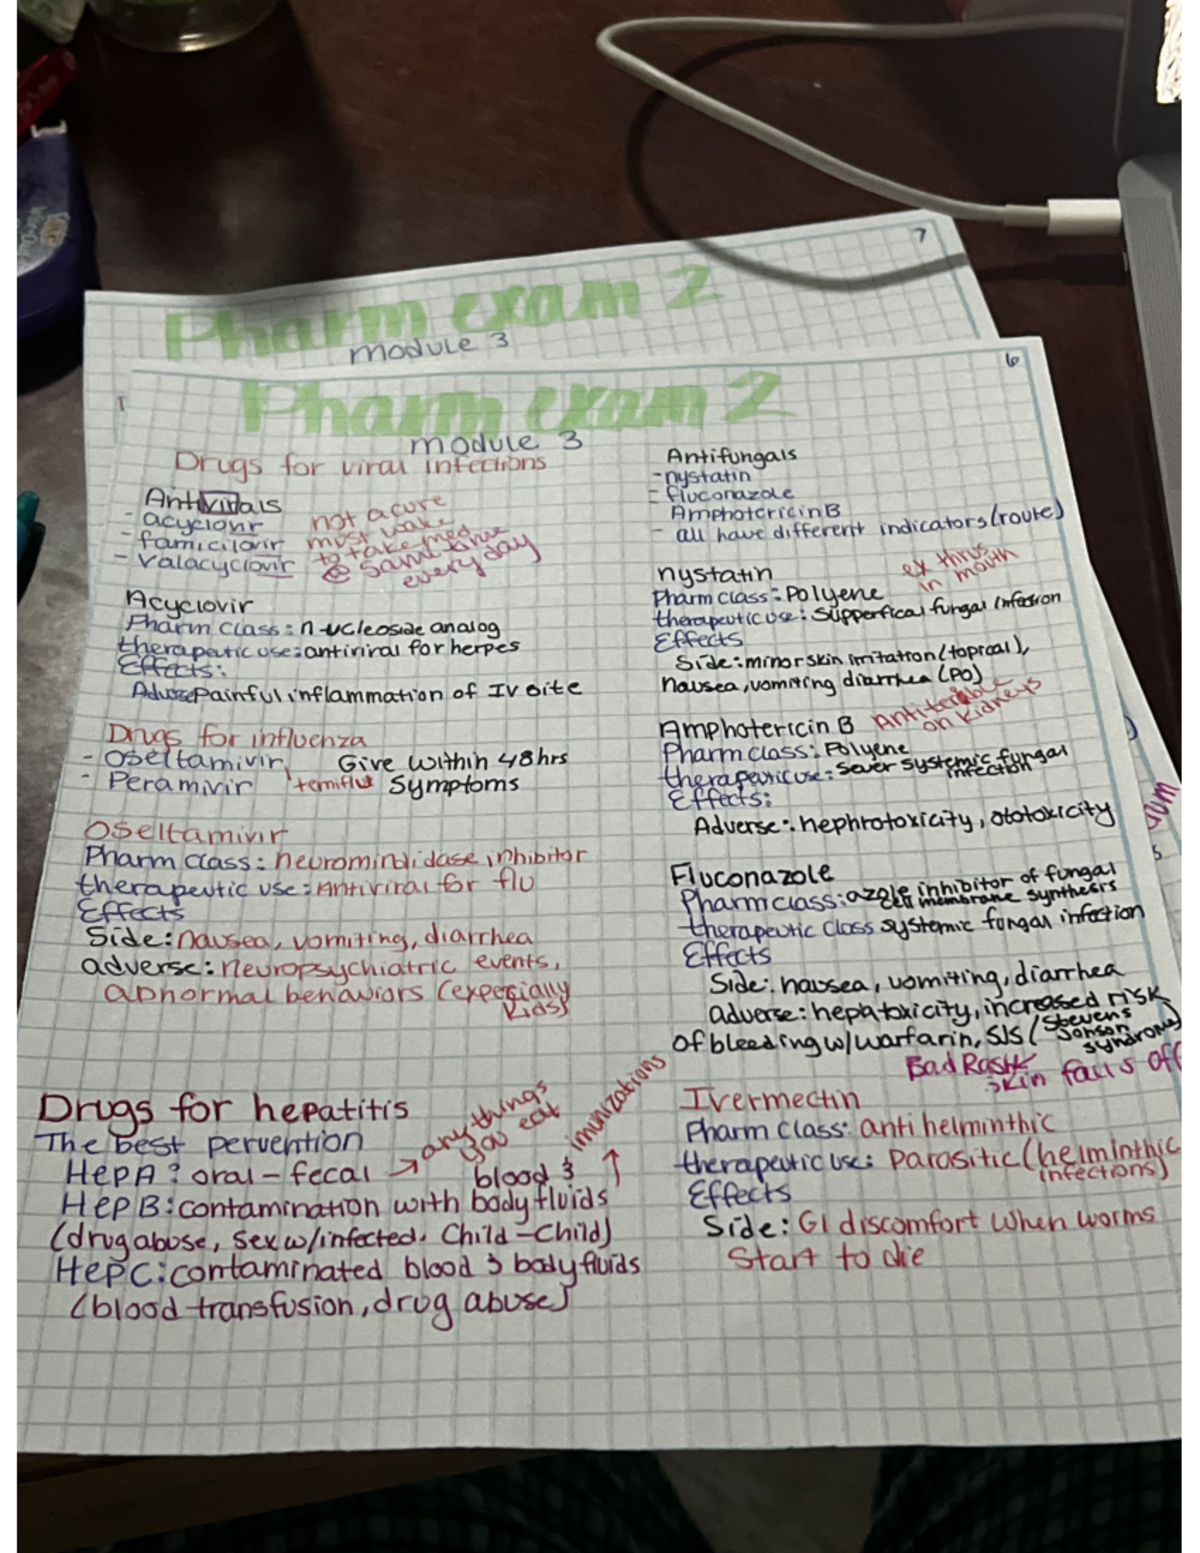 7
Pharm exam 2
module 3
6
Pharm exam 2
module 3
Drugs for viral infections
Antivirals
- acyclovir
- famicilovir
- valacyclovir
not a cure
must wake
to take med
@ same time
every day
Acyclovir
Pharm class: nucleoside analog
therapeutic use: antiviral for herpes
Effects:
Adverse: Painful inflammation of IV site
Drugs for influenza
- Oseltamivir
- Peramivir
temiflu
Give within 48hrs
Symptoms
Oseltamivir
Pharm class: neuromindidase inhibitor
therapeutic use: Antiviral for flu
Effects
Side: nausea, vomiting, diarrhea
adverse: neuropsychiatric events,
abnormal behaviors (expecially
kids)
Drugs for hepatitis
The best pervention
HepA: oral-fecal → any things
you eat
blood & imunizations
HepB: contamination with body fluids
(drug abuse, sex w/infected. Child-Child)
HepC: contaminated blood & body fluids
(blood transfusion, drug abuse)
Antifungals
- nystatin
- fluconazole
Amphotericin B
- all have different indicators (route)
nystatin
ex thrus
in mouth
Pharm class: Polyene
therapeutic use: Supperfical fungal infection
Effects
Side: minor skin irritation (topical),
nausea, vomiting diarrhea (PO)
Amphotericin B
on kidneys
Pharm class: Polyene
therapeutic use: Sever systemic fungal
infection
Effects:
Adverse: nephrotoxicity, ototoxicity
Fluconazole
Pharm class: azole inhibitor of fungal
cell membrane synthesis
therapeutic class systemic fungal infection
Effects
Side: nausea, vomiting, diarrhea
adverse: hepatoxicity, increased risk
of bleeding w/warfarin, SJS (Stevens
Jonson
syndrome)
Bad Rash
skin falls off
Ivermectin
Pharm class: anti helminthic
therapeutic use: Parasitic (helminthic
infections)
Effects
Side: GI discomfort when worms
Start to die